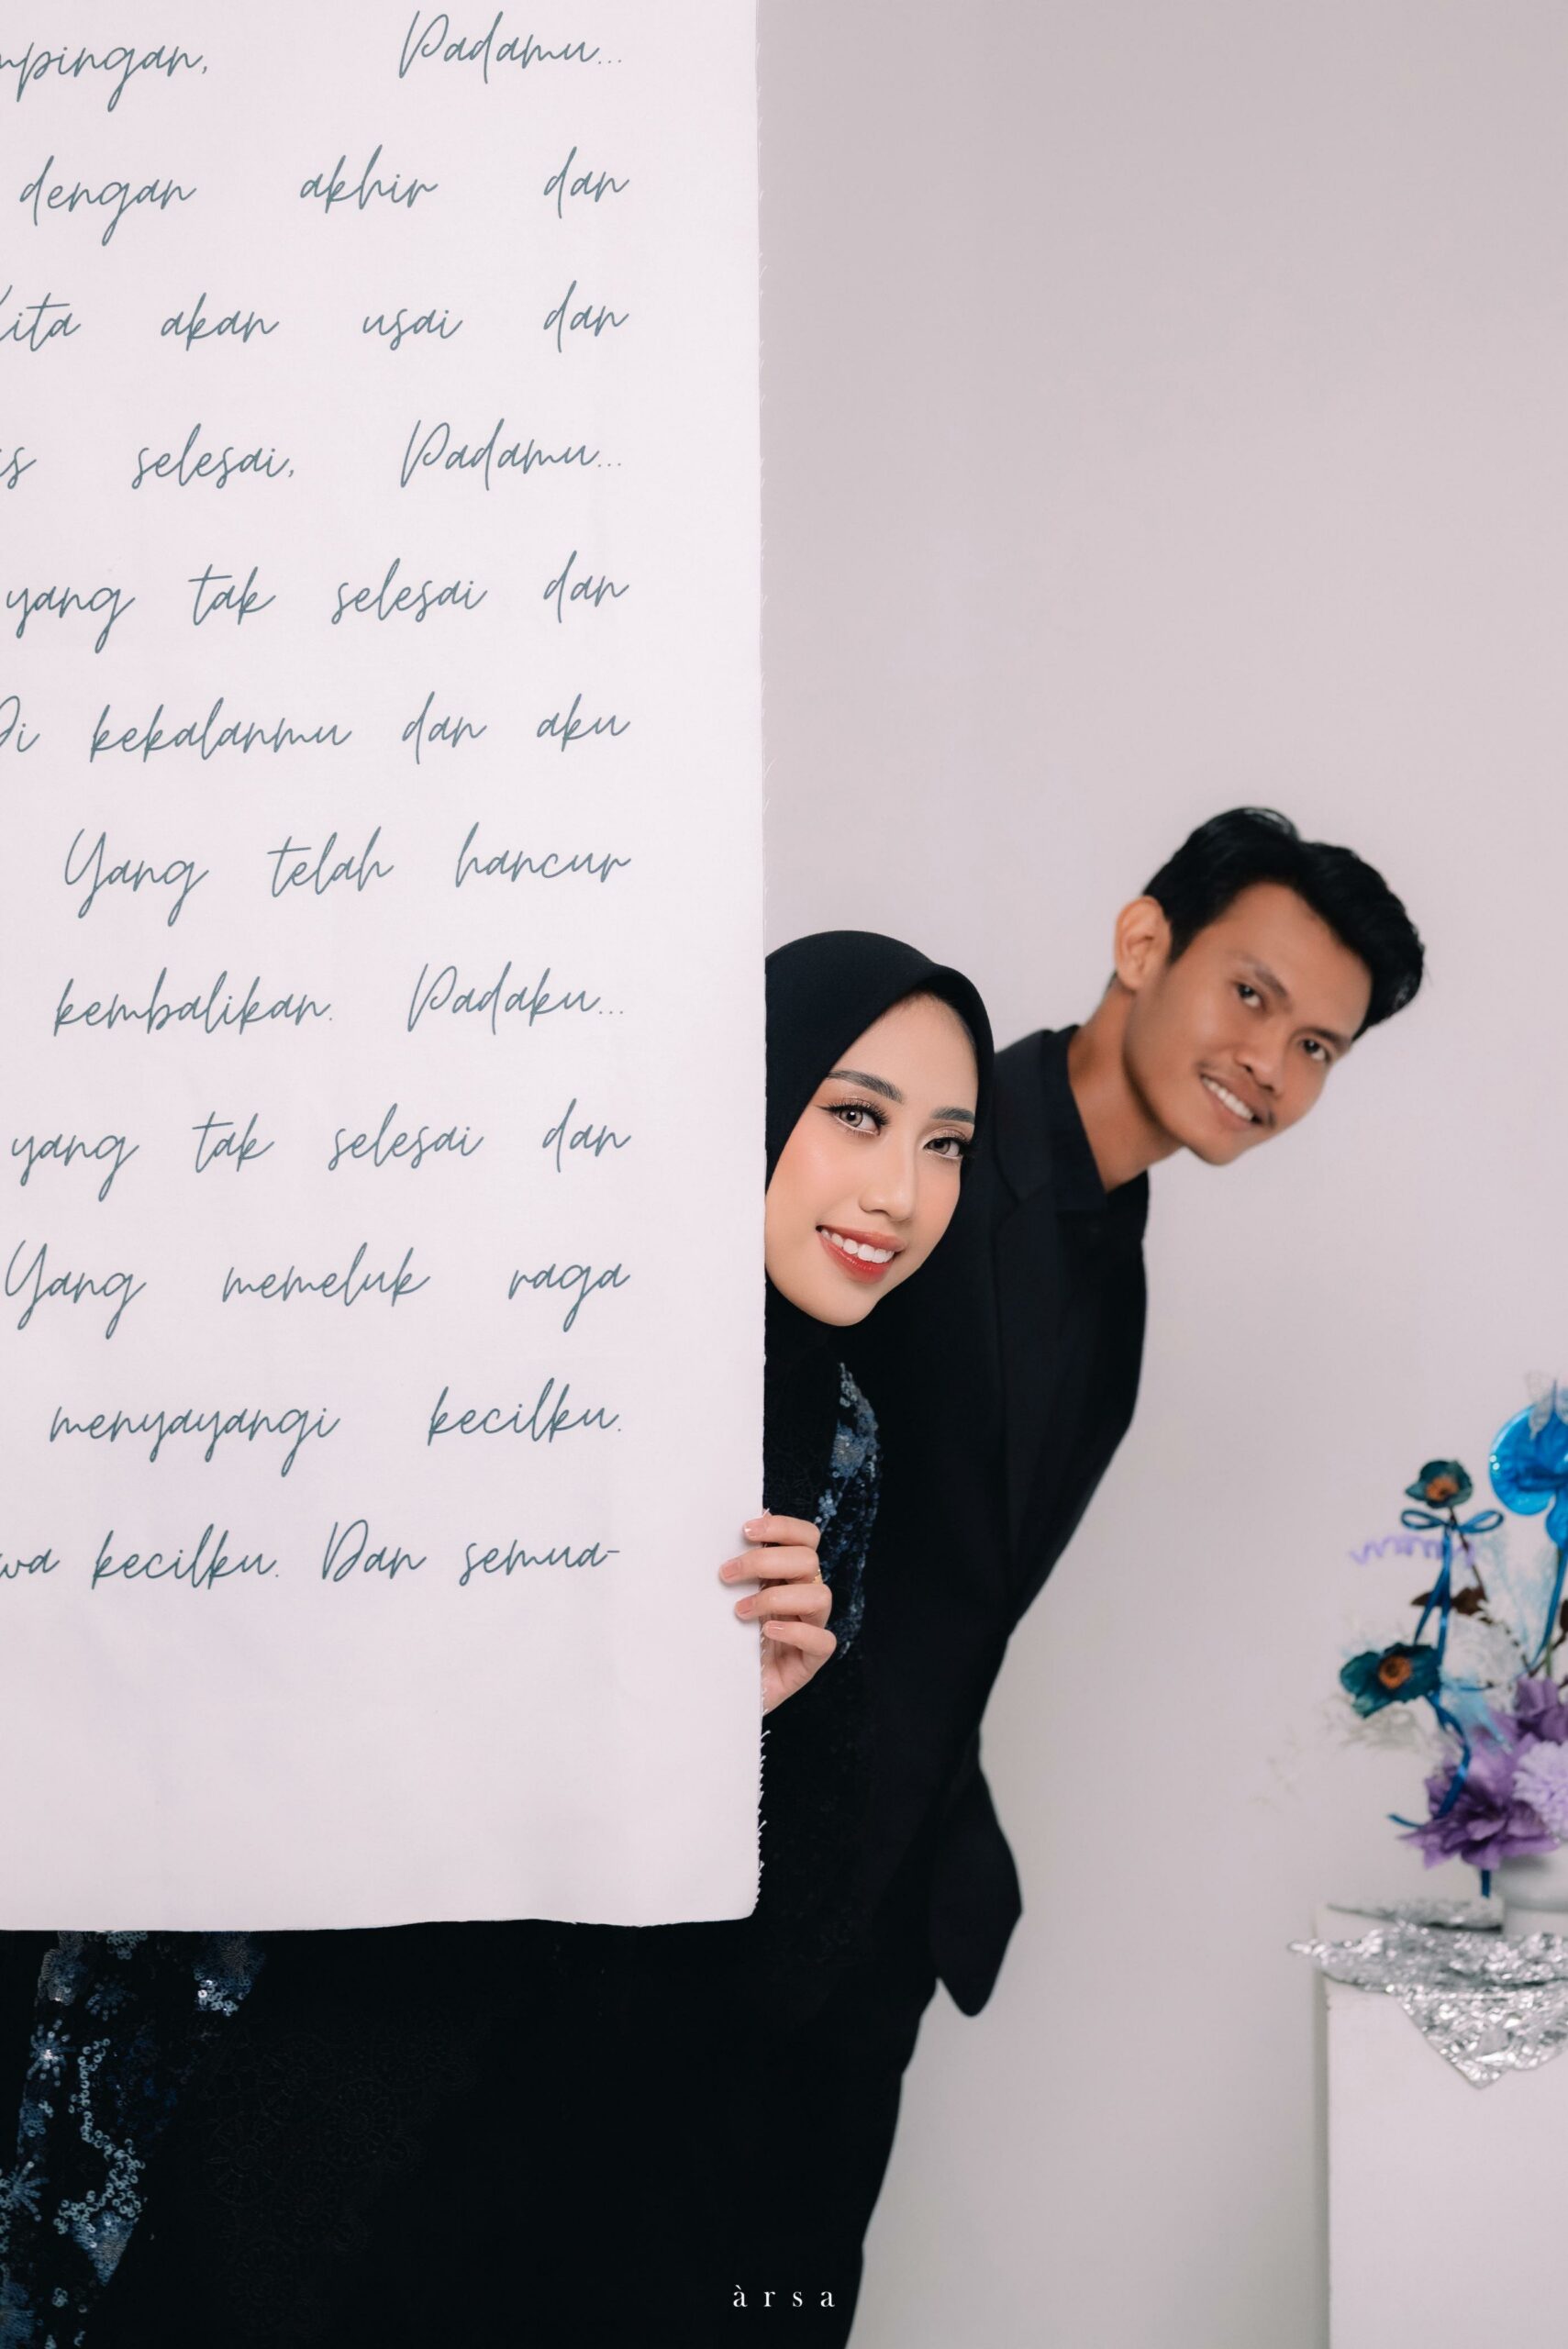 Padamu...
dengan akhir dan
akan usai dan
selesai, Padamu...
yang tak selesai dan
Di kekalanmu dan aku
Yang telah hancur
kembalikan. Padaku...
yang tak selesai dan
Yang memeluk raga
menyayangi kecilku.
kecilku. Dan semua-
àrsa